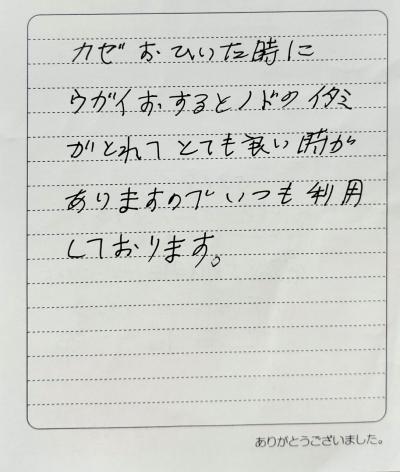 カゼおひいた時に
ウガイおするとノドのイタミ
がとれてとても良い時が
ありますのでいつも利用
しております。
ありがとうございました。